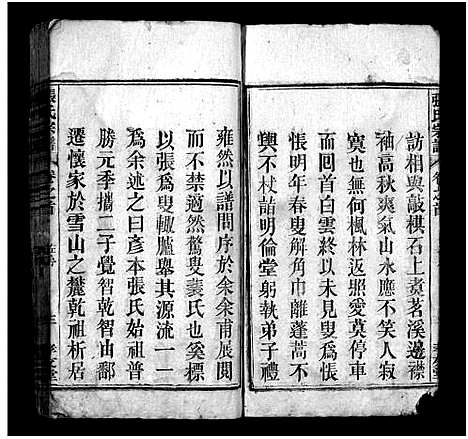 訪相與敲棋石上煮茗溪邊襟
袖高秋爽氣山水應不笑人寂
寞也無何楓林返照愛莫停車
而回首白雲終以未見叟爲
悵明年春叟解角巾攝蓬蒿
興不杖詣明倫堂躬執弟子禮
雍然以譜問序於余余甫展閱
而不禁適然驚叟裴氏也奚標
以張爲叟轍臚舉其源流一一
爲余述之曰彥本張氏始祖普
勝元季攜二子覺智乾智由鄱
遷懷家於雪山之麓乾祖析居
張氏宗譜
卷之首